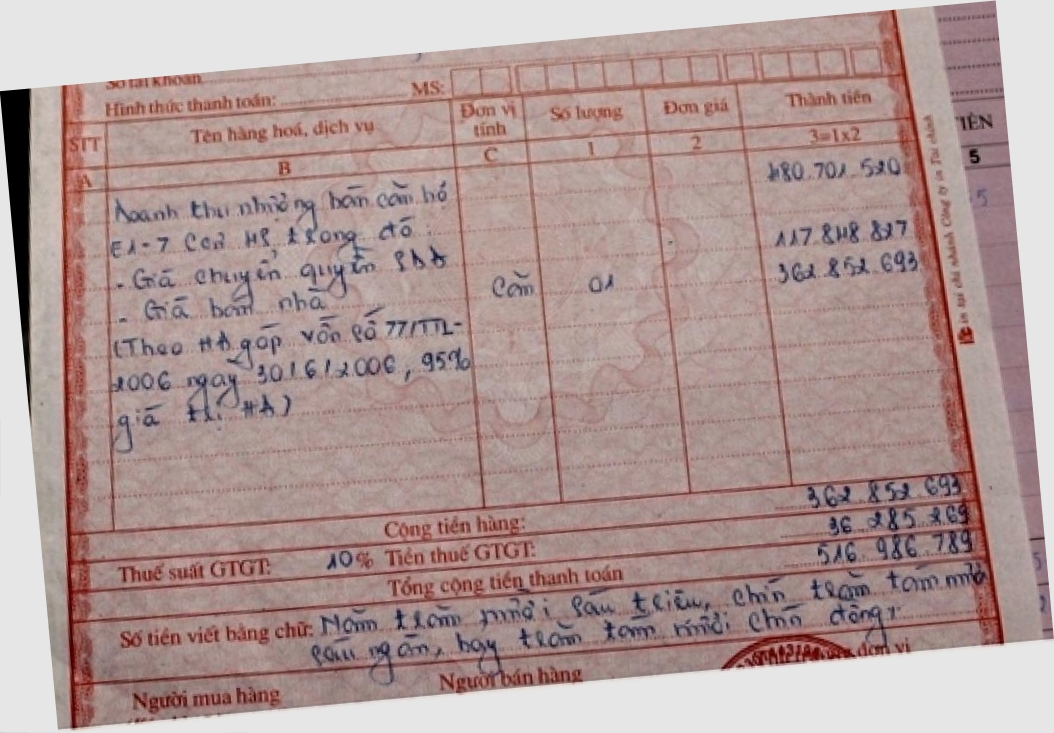 Số tài khoản
Hình thức thanh toán: MS:
STT Tên hàng hoá, dịch vụ Đơn vị tính Số lượng Đơn giá Thành tiền
A B C 1 2 3=1x2
Doanh thu nhượng bán căn hộ 480.701.520
E1-7 CC2 MS, trong đó:
- Giá chuyển quyền SDĐ 117.848.827
- Giá bán nhà Căn 01 362.852.693
(Theo HĐ góp vốn số 77/TTL-
2006 ngày 30/6/2006, 95%
giá trị HĐ)
Cộng tiền hàng: 362.852.693
Thuế suất GTGT: 10% Tiền thuế GTGT: 36.285.269
Tổng cộng tiền thanh toán 516.986.789
Số tiền viết bằng chữ: Năm trăm mười sáu triệu, chín trăm tám mươi
sáu ngàn, bảy trăm tám mươi chín đồng
Người mua hàng Người bán hàng đơn vị
In tại chi nhánh Công ty in Tài chính
TIỀN
5